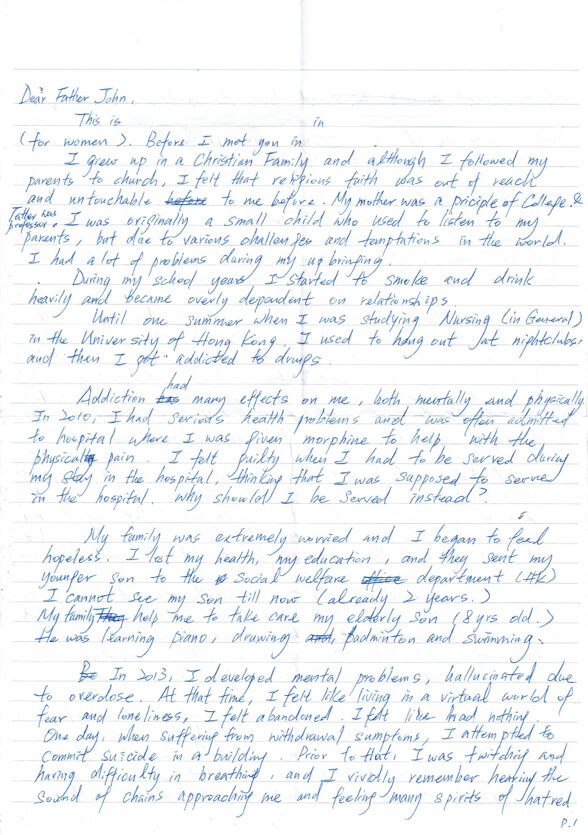 Dear Father John,
This is in
(for women). Before I met you in
I grew up in a Christian Family and although I followed my
parents to church, I felt that religious faith was out of reach
and untouchable before to me before. My mother was a priciple of College. &
Father was professor. I was originally a small child who used to listen to my
parents, but due to various challenges and temptations in the world.
I had a lot of problems during my up bringing.
During my school years I started to smoke and drink
heavily and became overly dependent on relationships.
Until one summer when I was studying Nursing (in General)
in the University of Hong Kong, I used to hang out at nightclubs
and then I got addicted to drugs.
had
Addiction has many effects on me, both mentally and physically.
In 2010, I had serious health problems and was often admitted
to hospital where I was given morphine to help with the
physical pain. I felt guilty when I had to be served during
my stay in the hospital, thinking that I was supposed to serve
in the hospital. Why should I be served instead?
My family was extremely worried and I began to feel
hopeless. I lost my health, my education, and they sent my
younger son to the Social welfare office department (HK)
I cannot see my son till now (already 2 years.)
My family They help me to take care my elderly son (8 yrs old.)
He was learning piano, drawing and, Badminton and Swimming.
Be In 2013, I developed mental problems, hallucinated due
to overdose. At that time, I felt like living in a virtual world of
fear and loneliness, I felt abandoned. I felt like had nothing.
One day, when suffering from withdrawal sumptoms, I attempted to
commit suicide in a building. Prior to that, I was twitching and
having difficulty in breathing, and I vividly remember hearing the
sound of chains approaching me and feeling many spirits of hatred
P.1